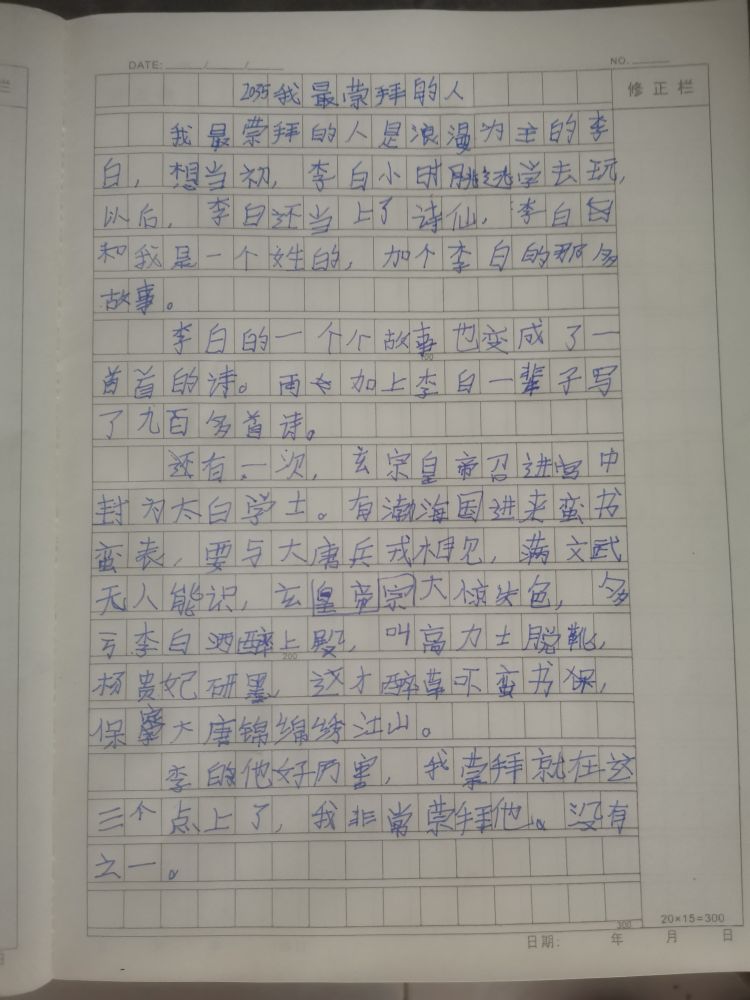 DATE: / /
NO.
修正栏
2035我最崇拜的人
我最崇拜的人是浪漫为主的李
白,想当初,李白小时逃学去玩,
以后,李白还当上了诗仙,李白
和我是一个姓的,加个李白的那多
故事。
李白的一个个故事也变成了一
首首的诗。再加上李白一辈子写
了九百多首诗。
还有一次,玄宗皇帝召进宫中
封为太白学士。有渤海国进来蛮书
蛮表,要与大唐兵戎相见,满文武
无人能识,玄皇帝宗大惊失色,多
亏李白酒醉上殿,叫高力士脱靴,
杨贵妃研墨,这才醉草吓蛮书保,
保大唐锦绵绣江山。
李的他好厉害,我崇拜就在这
三个点上了,我非常崇拜他。没有
之一。
100
200
300
20×15=300
日期: 年 月 日